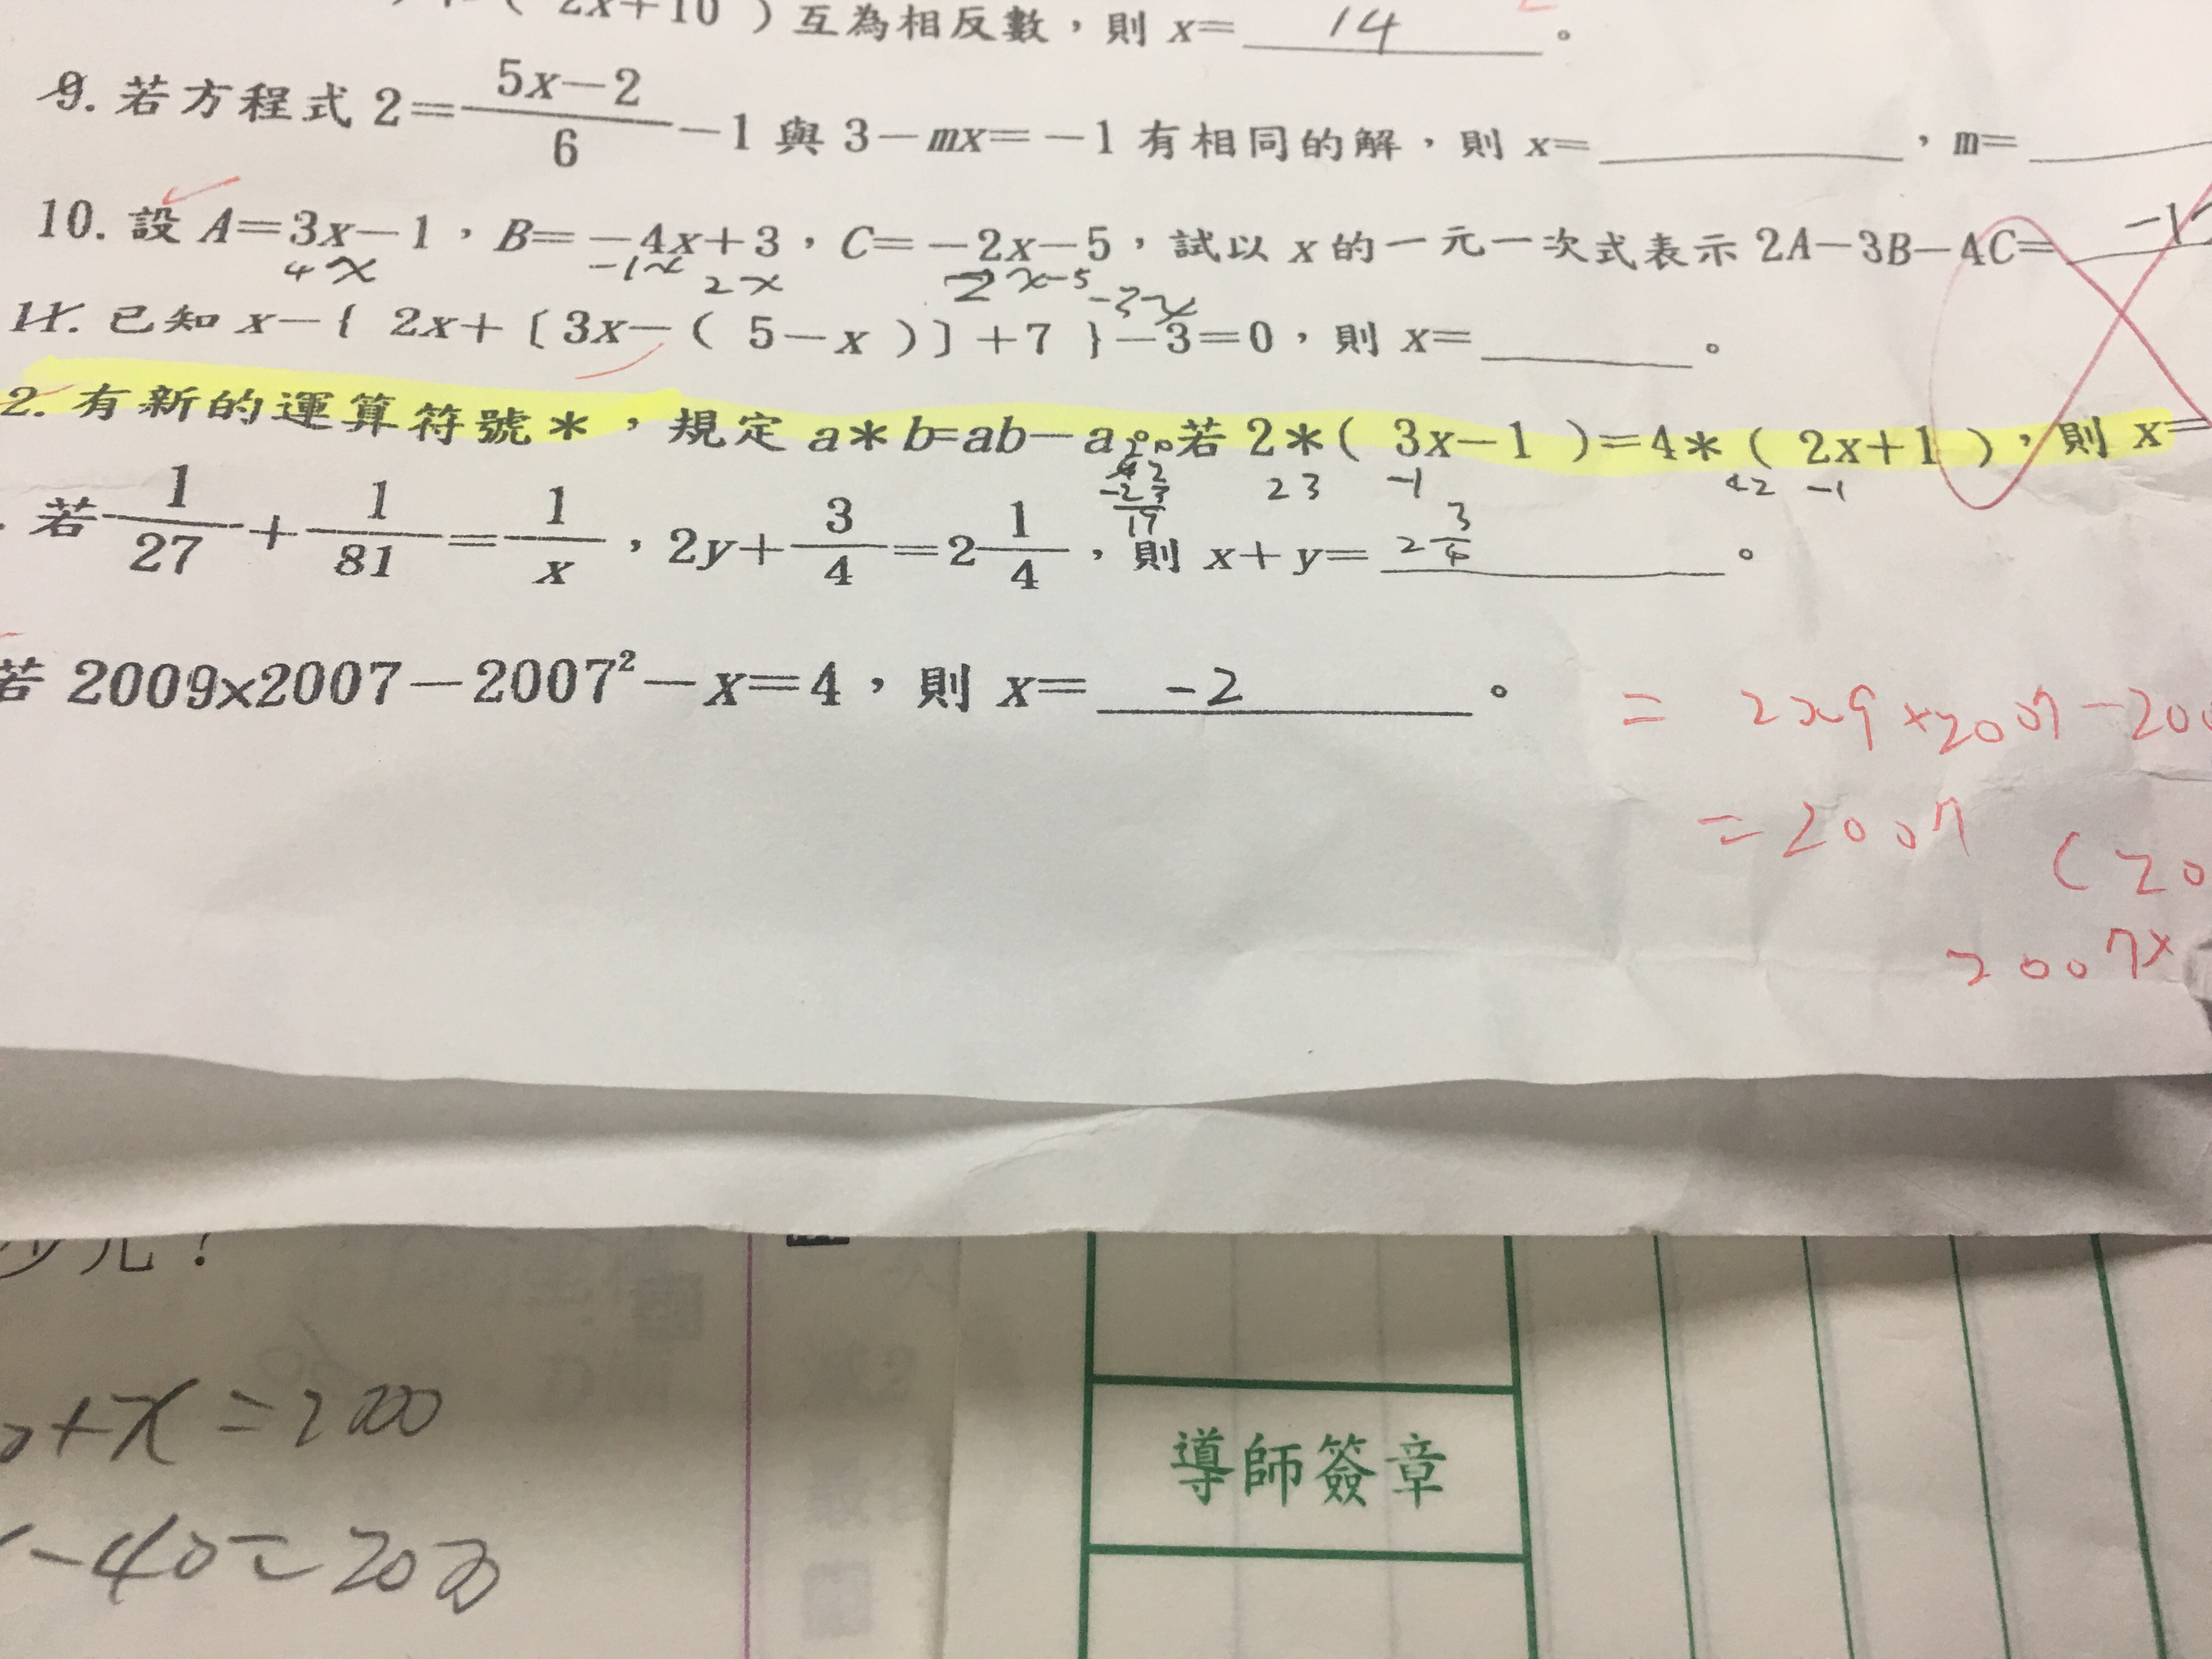 ( 2x+10 ) 互為相反數，則 x= 14 。
9. 若方程式 2=\frac{5x-2}{6}-1 與 3-mx=-1 有相同的解，則 x=______，m=______
10. 設 A=3x-1，B=-4x+3，C=-2x-5，試以 x 的一元一次式表示 2A-3B-4C=
4x -1x 2x -2x-5 -3x
11. 已知 x-{ 2x+[3x-( 5-x )]+7 }-3=0，則 x=______。
2. 有新的運算符號＊，規定 a＊b=ab-a。若 2＊( 3x-1 )=4＊( 2x+1 )，則 x=
42
-23
19
23 -1 42 -1
. 若 \frac{1}{27}+\frac{1}{81}=\frac{1}{x}，2y+\frac{3}{4}=2\frac{1}{4}，則 x+y= 2\frac{3}{4} 。
若 2009×2007-2007²-x=4，則 x= -2 。
= 2009×2007-200
=2007 (20
2007×
少元？
+x=200
-40=200
導師簽章